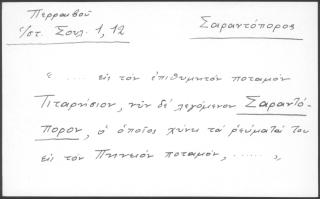 Περραιβοῦ
Ἱστ. Σουλ. 1,12
Σαραντόπορος
« .... εἰς τὸν ἐπιθυμητὸν ποταμὸν
Τιταρήσιον, νῦν δὲ λεγόμενον Σαραντό-
πορον, ὁ ὁποῖος χύνει τὰ ῥεύματά του
εἰς τὸν Πηνειὸν ποταμόν, ...... »,